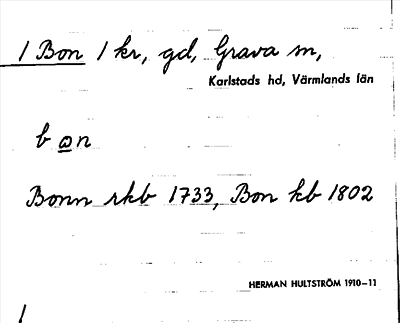 1 Bon 1 kr, gd, Grava sn,
Karlstads hd, Värmlands län
b ɷn
Bonn rkb 1733, Bon kb 1802
HERMAN HULTSTRÖM 1910–11